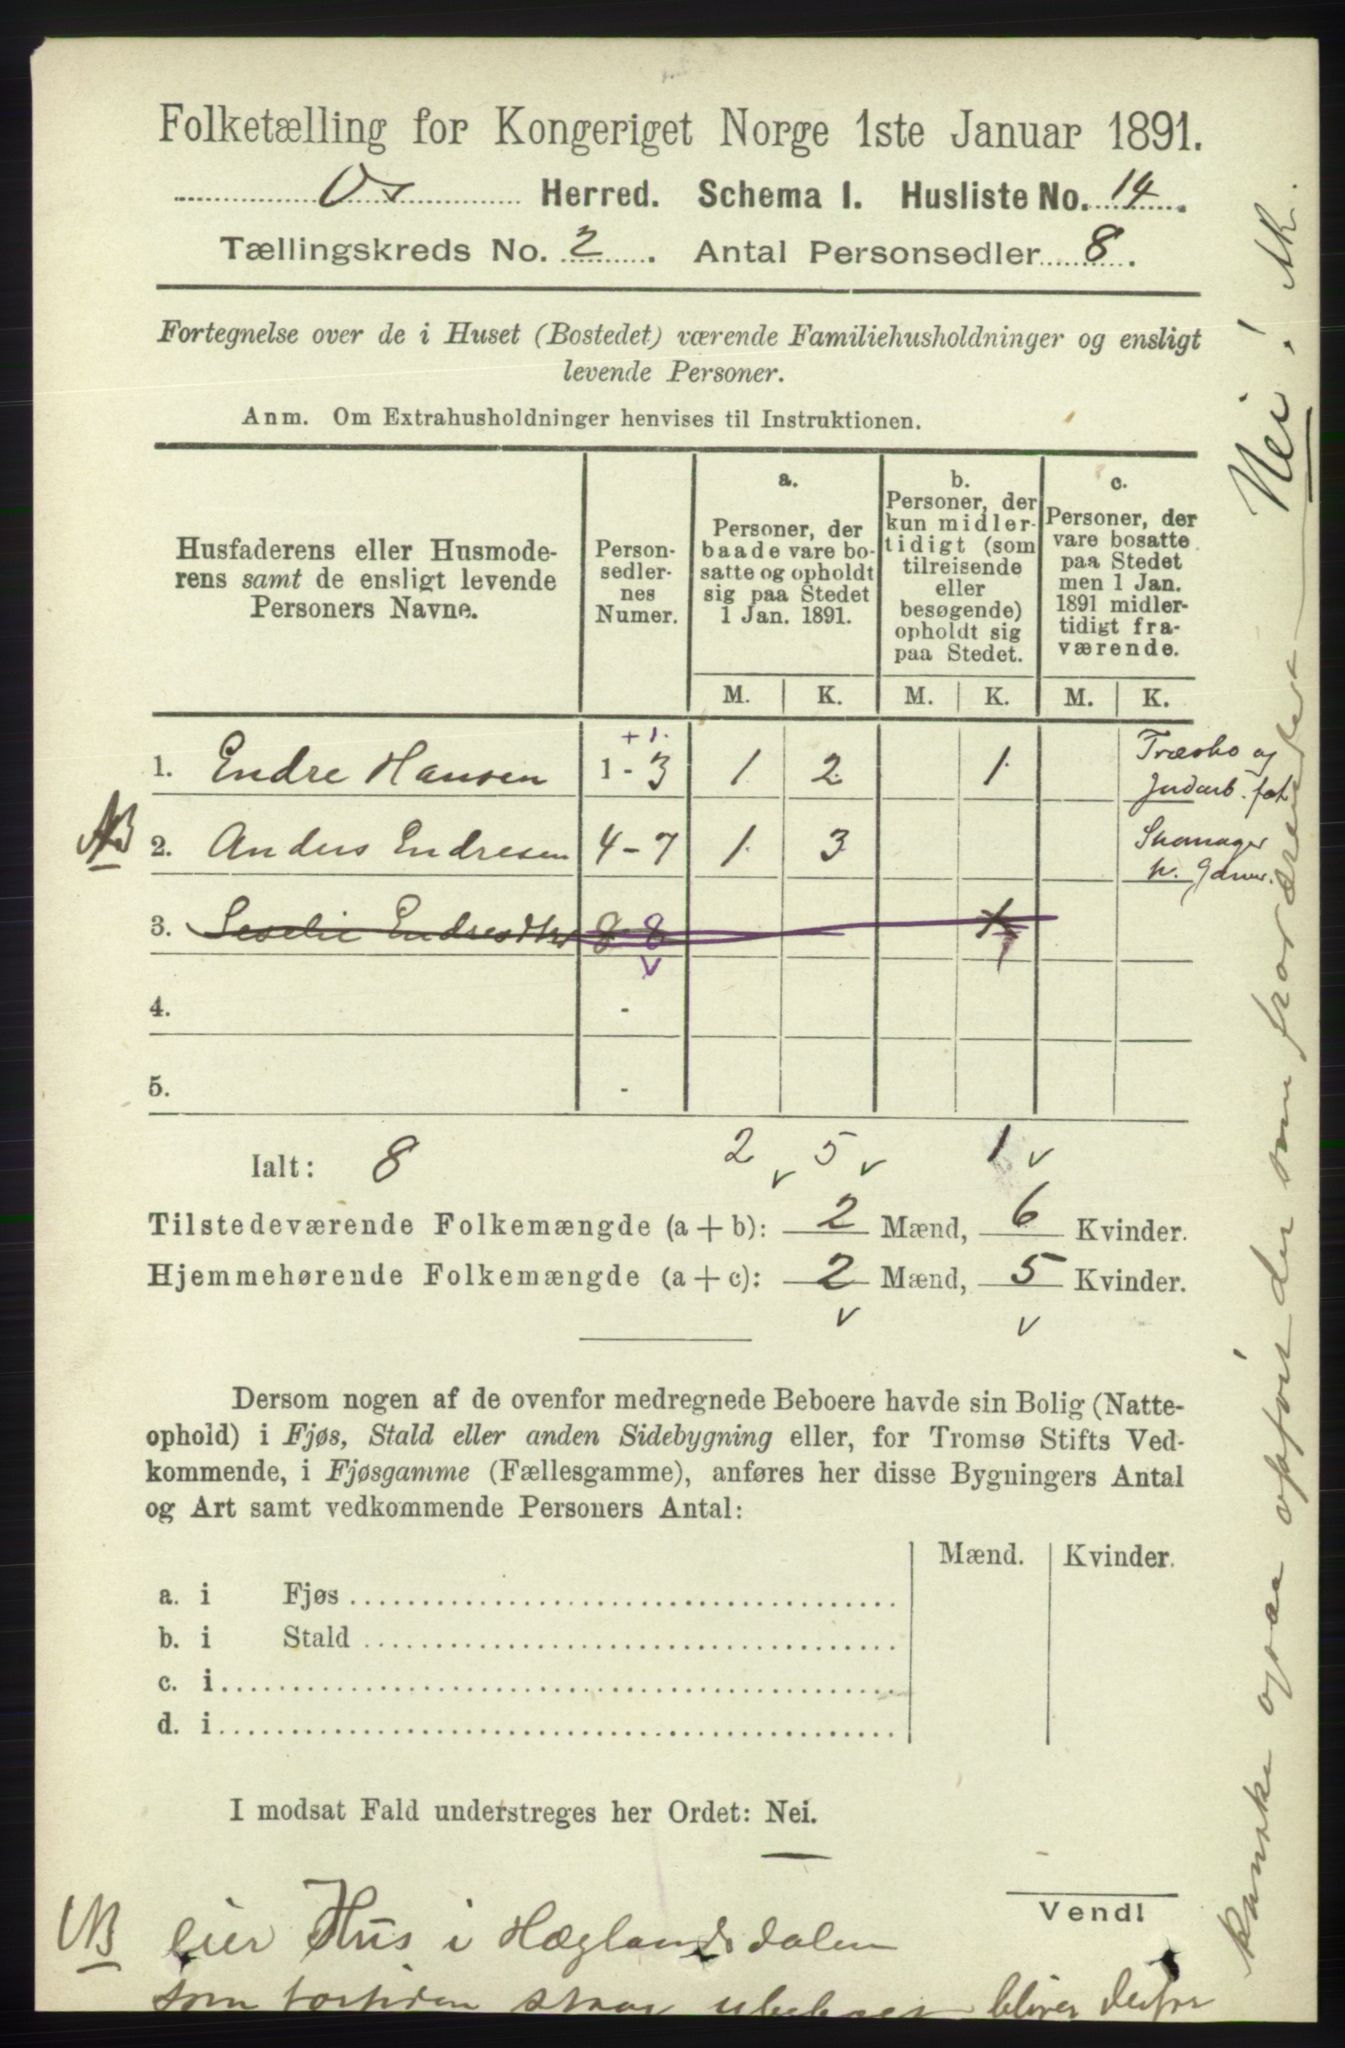 Folketælling for Kongeriget Norge 1ste Januar 1891.
Os Herred. Schema I. Husliste No. 14.
Tællingskreds No. 2. Antal Personsedler 8.
Fortegnelse over de i Huset (Bostedet) værende Familiehusholdninger og ensligt
levende Personer.
Anm. Om Extrahusholdninger henvises til Instruktionen.
Husfaderens eller Husmode-
rens samt de ensligt levende
Personers Navne.
Person-
sedler-
nes
Numer.
a.
Personer, der
baade vare bo-
satte og opholdt
sig paa Stedet
1 Jan. 1891.
b.
Personer, der
kun midler-
tidigt (som
tilreisende
eller
besøgende)
opholdt sig
paa Stedet.
c.
Personer, der
vare bosatte
paa Stedet
men 1 Jan.
1891 midler-
tidigt fra-
værende.
M. K. M. K. M. K.
+ 1.
1. Endre Hansen 1 - 3 1 2 1 Træsko og
Jordarb. fat
NB 2. Anders Endresen 4 - 7 1 3 Skomager
3. Seselie Endresdtr 8 - 8 1
4. -
5. -
Ialt: 8 2 5 1
Tilstedeværende Folkemængde (a + b): 2 Mænd, 6 Kvinder.
Hjemmehørende Folkemængde (a + c): 2 Mænd, 5 Kvinder.
Dersom nogen af de ovenfor medregnede Beboere havde sin Bolig (Natte-
ophold) i Fjøs, Stald eller anden Sidebygning eller, for Tromsø Stifts Ved-
kommende, i Fjøsgamme (Fællesgamme), anføres her disse Bygningers Antal
og Art samt vedkommende Personers Antal:
Mænd. Kvinder.
a. i Fjøs
b. i Stald
c. i
d. i
I modsat Fald understreges her Ordet: Nei.
Vendl
NB eier Hus i Hæglandsdalen
som fortiden staar ubeboet bliver derfor
kanske ogsaa opført der som fraværende
Nei! AK.